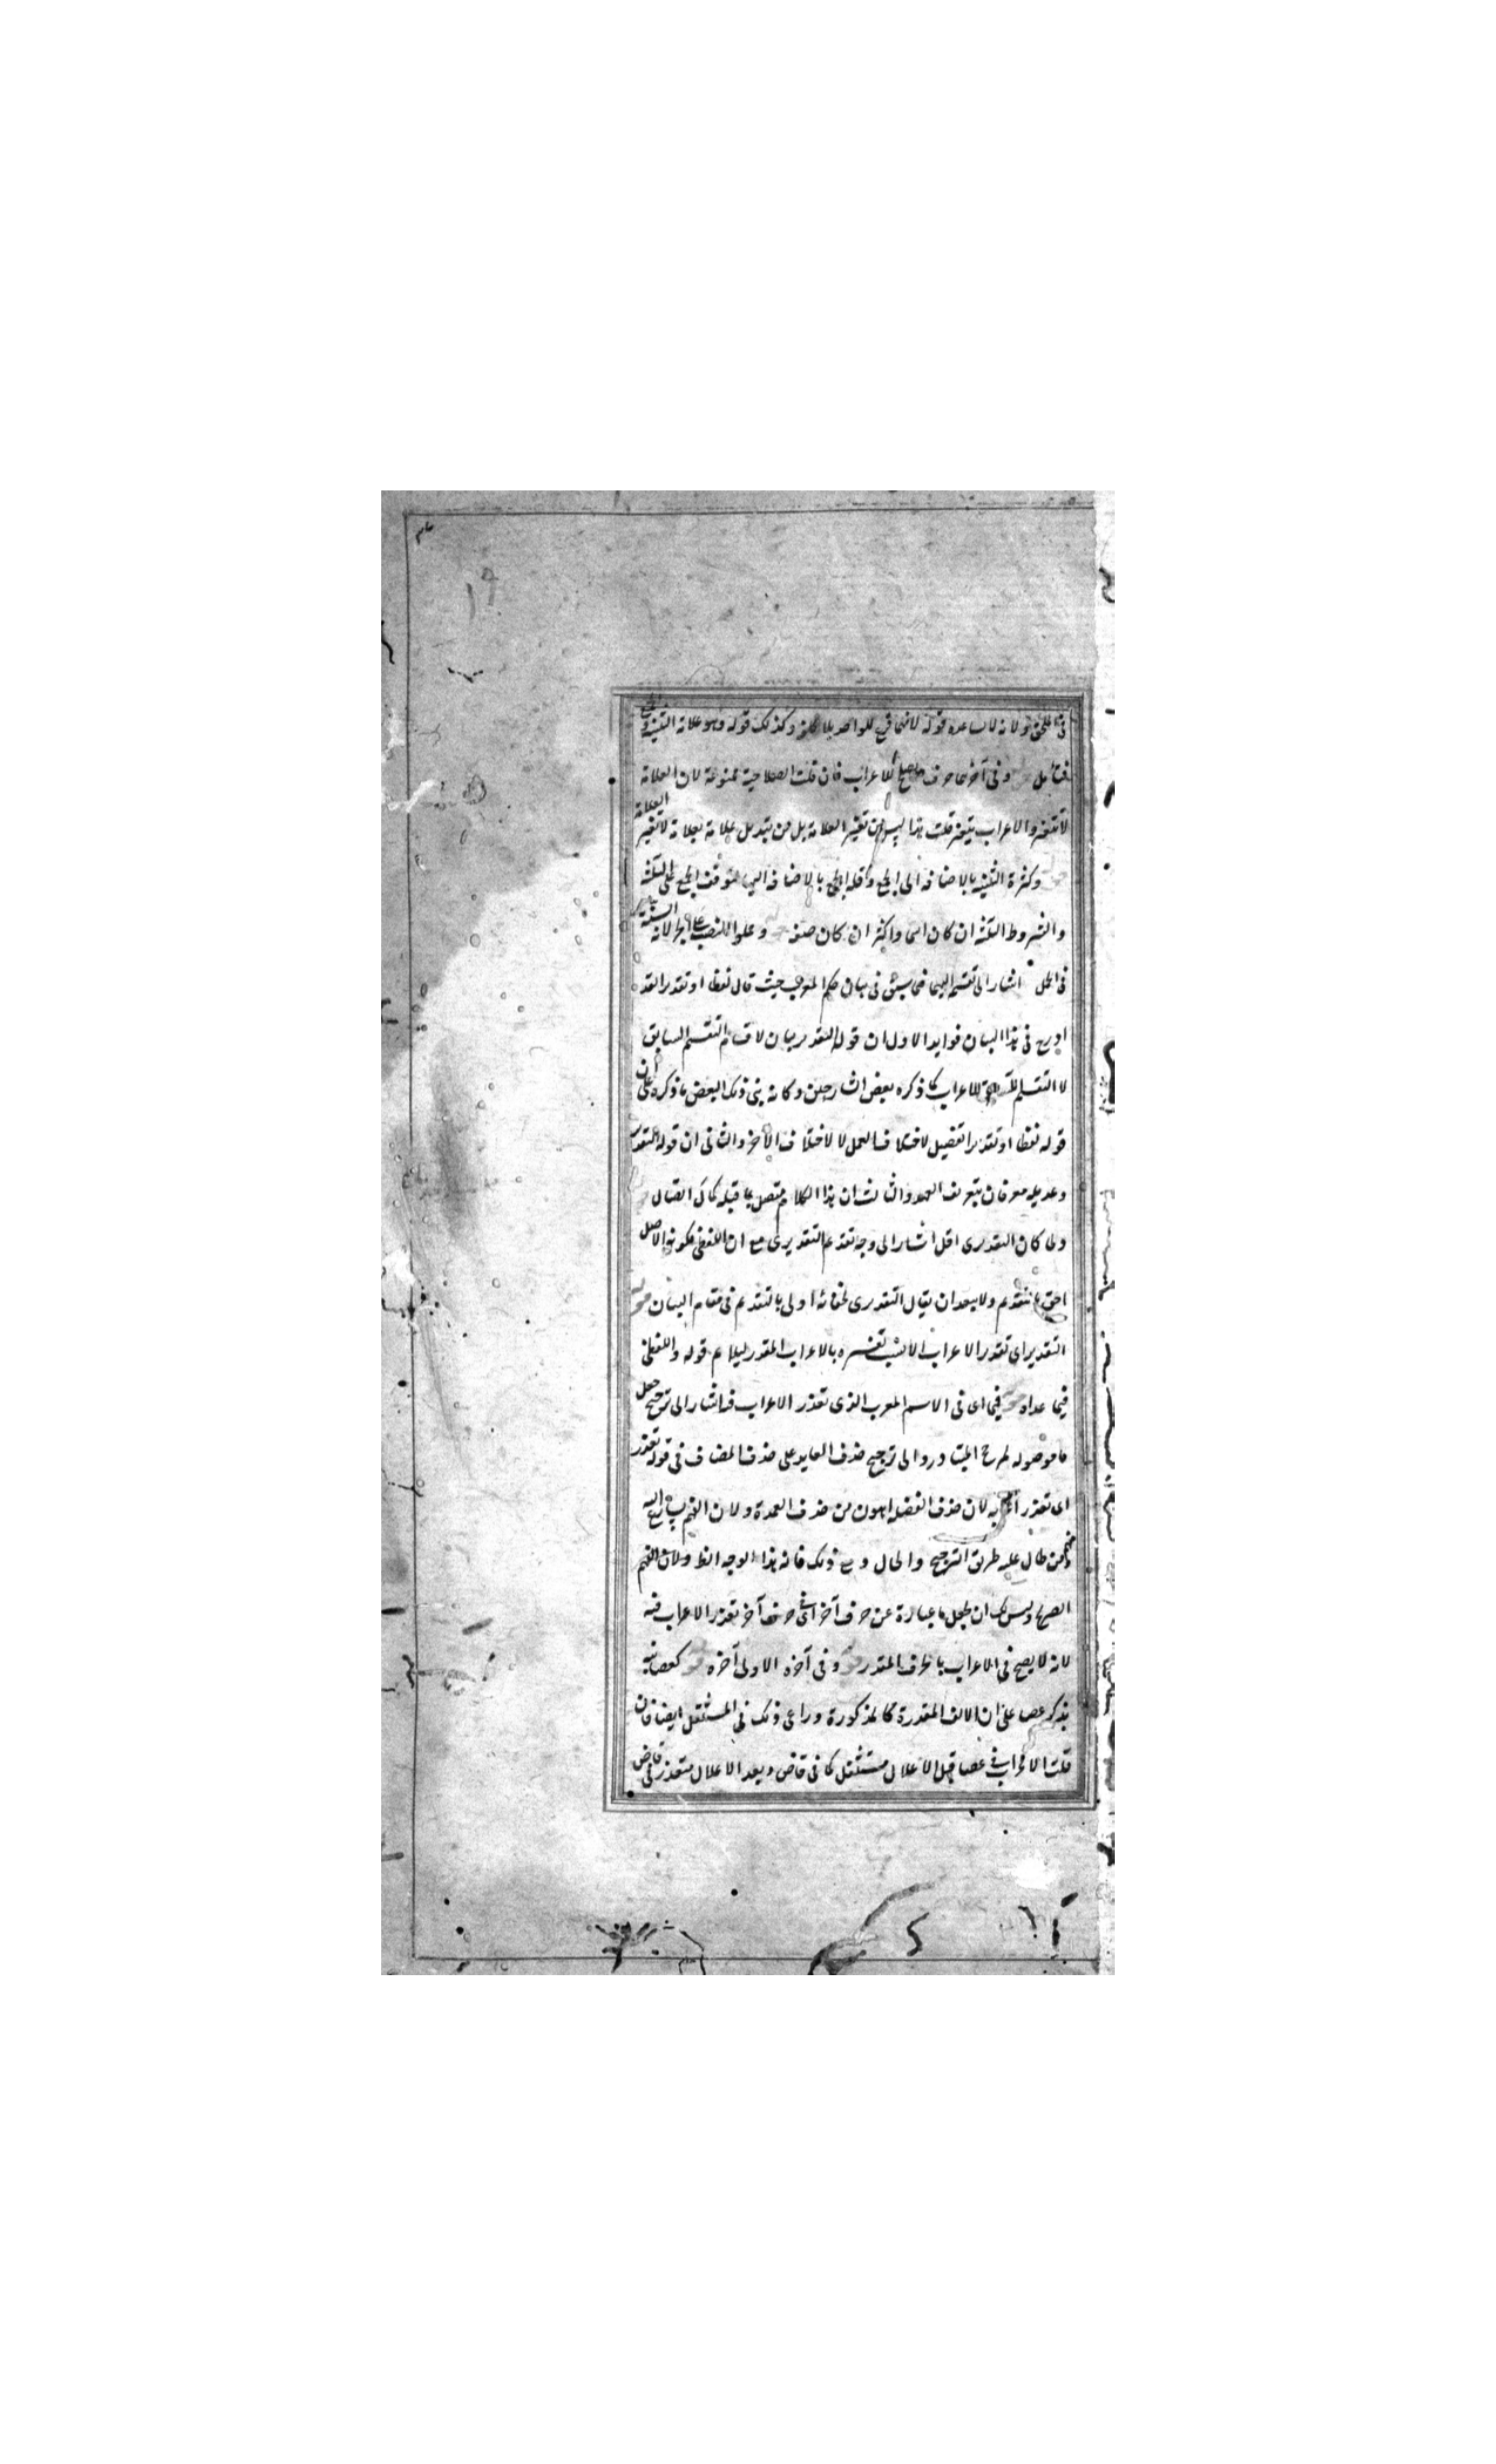 في الملحق ولانه لا يساعده قوله لانهما فرع للواحد بلا وكذلك قوله وهو علامة التثنية والجمع
فتأمل وفي آخرهما حرف يصلح للاعراب فان قلت الصلاحية ممنوعة لان العلامة
لا تتغير والاعراب يتغير قلت هذا ليس من تغيير العلامة بل من تبديل علامة بعلامة لا تغيير العلامة
وكثرة التثنية بالاضافة الى الجمع وقلة الجمع بالاضافة اليها لتوقف الجمع على الثلثة
والشروط الثلثة ان كان اسما واكثر ان كان صفة وحملوا النصب على الجر لانه
في الجمل اشار الى تقسيم اليهما فيما سبق في بيان حكم المعرب حيث قال لفظا او تقديرا لقد
ادرج في هذا البيان فوايد الاول ان قوله التقدير بيان لاقسام التقسيم السابق
لا التقسيم للاعراب كما ذكره بعض الشارحين وكانه بنى ذلك البعض ما ذكره على ان
قوله لفظا او تقديرا تفصيل لاختلاف العمل لا لاختلاف الآخر والثاني ان قوله التقدير
وعديله معرفان بتعريف العهد والثالث ان هذا الكلام متصل بما قبله كمال اتصال
ولما كان التقديري اقل اشار الى وجه تقديم التقديري مع ان اللفظي لكونه الاصل
احق بالتقديم ولا يبعد ان يقال التقديري لخفائه اولى بالتقديم في مقام البيان
التقدير اي تقدير الاعراب الانسب تفسيره بالاعراب المقدر ليلايم قوله واللفظي
فيما عداه فيما اي في الاسم المعرب الذي تعذر الاعراب فيه اشار الى ترجيح جعل
ما موصولة المتبادر والى ترجيح حذف العايد على حذف المضاف في قوله تعذر
اي تعذر اعرابه لان حذف الفضلة اهون من حذف العمدة ولان الفهم
فمن طال عليه طريق الترجيح والحال ومع ذلك فانه هذا الوجه الفهم
الصحاح وليس لك ان تجعل ما عبارة عن حرف آخر اي في حرف آخر تعذر الاعراب فيه
لانه لا يصح في الاعراب بالحرف المقدر وفي آخره الاولى آخره كعصا نبه
بذكر عصا على ان الالف المقدرة كالمذكورة وراعى ذلك في المستثقل ايضا فان
قلت الاعراب في عصا قبل الاعلال مستثقل كما في قاض وبعد الاعلال متعذر في قاض